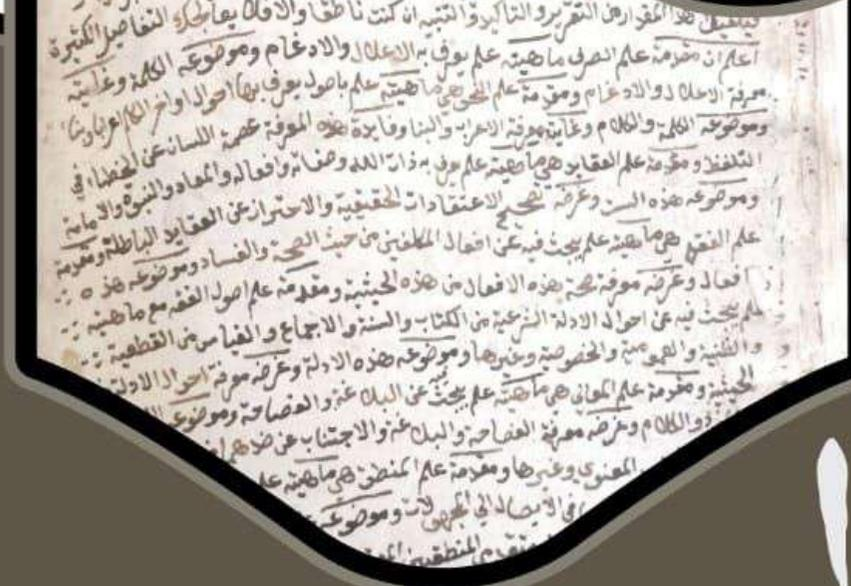 هذا المقدار من التقرير والتاكيد والتنبيه ان كنت ناطقا والا فلا التفاصيل الكثيرة
اعلم ان مقدمة علم الصرف ماهيته علم يعرف به الاعلال والادغام وموضوعه الكلمة وغايته
معرفة الاعلال والادغام ومقدمة علم النحو هي ماهيته علم باصول يعرف بها احوال اواخر الكلم اعرابا وبناءا
وموضوعه الكلمة والكلام وغايته معرفة الاعراب والبنا وفايدة هذه المعرفة عصمة اللسان عن الخطاء في
التلفظ ومقدمة علم العقايد هي ماهيته علم يعرف به ذات الله وصفاته وافعاله والمعاد والنبوة والامامة
وموضوعه هذه وغرضه تصحيح الاعتقادات الحقيقية والاحتراز عن العقايد الباطلة ومقدمة
علم الفقه هي ماهيته علم يبحث فيه عن افعال المكلفين من حيث الصحة والفساد وموضوعه هذه
افعال وغرضه معرفة صحة هذه الافعال من هذه الحيثية ومقدمة علم اصول الفقه مع ماهيته
علم يبحث فيه عن احوال الادلة الشرعية من الكتاب والسنة والاجماع والقياس من القطعية
والظنية والعمومية والخصوصية وغيرها وموضوعه هذه الادلة وغرضه معرفة احوال الادلة
الحيثية ومقدمة علم المعاني هي ماهيته علم يبحث عن البلاغة والفصاحة وموضوعه
والكلام وغرضه معرفة الفصاحة والبلاغة والاجتناب عن ضدهما
المعنوي وغيرها ومقدمة علم المنطق هي ماهيته
في الايصال الي المجهولات وموضوعه
المنطقيين